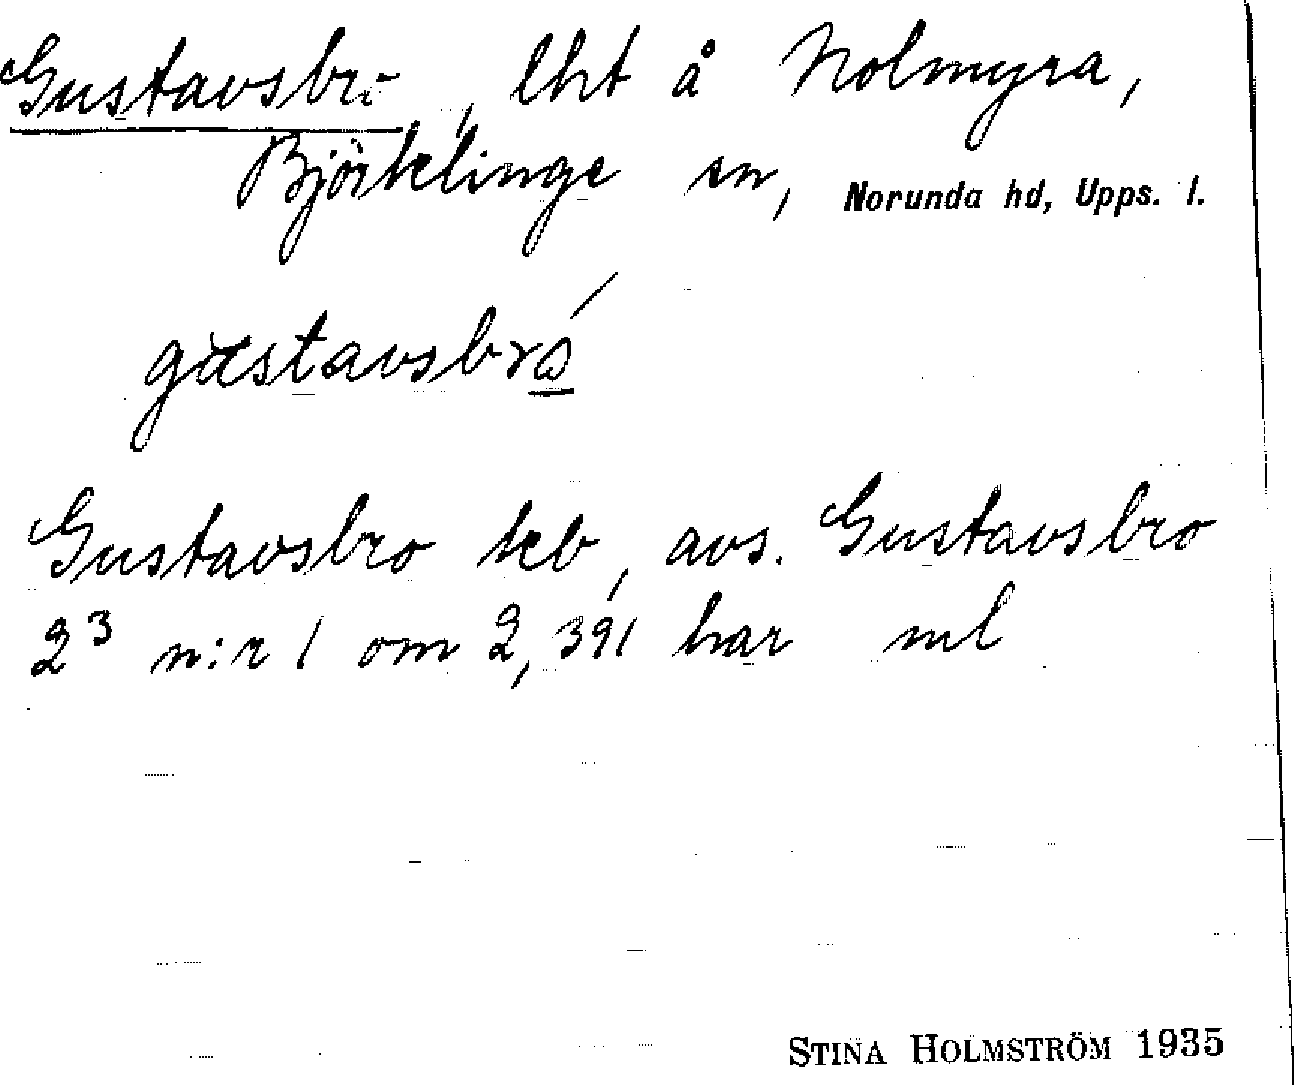 Gustavsbro, lht å Nolmyra,
Björklinge sn, Norunda hd, Upps. l.
gustavsbró
Gustavsbro teb, avs. Gustavsbro
2³ n:r 1 om 2,391 har ml
STINA HOLMSTRÖM 1935